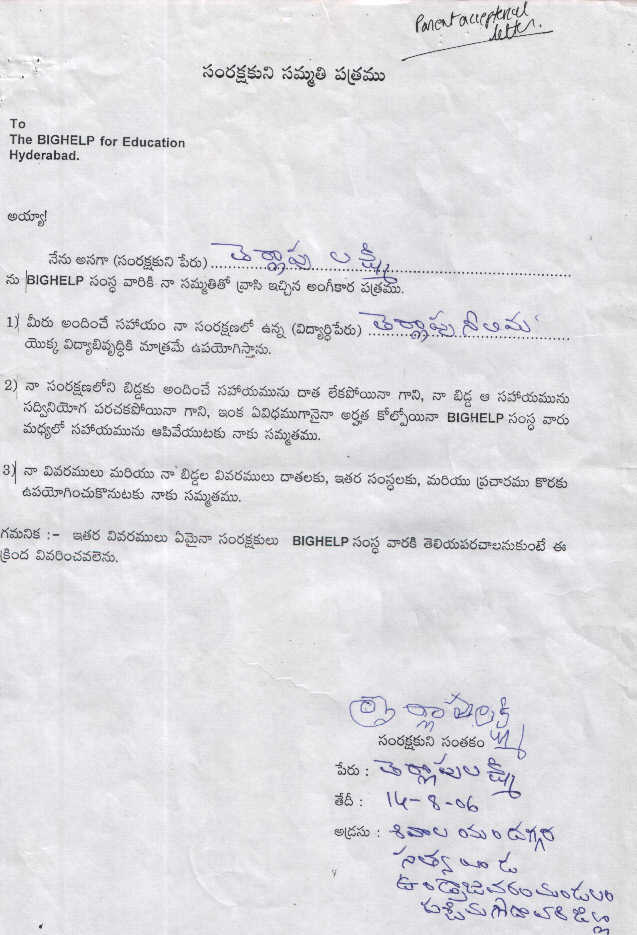 Parent acceptencal
letter.
సంరక్షకుని సమ్మతి పత్రము
To
The BIGHELP for Education
Hyderabad.
అయ్యా!
నేను అనగా (సంరక్షకుని పేరు) తెర్లాపు లక్ష్మి
ను BIGHELP సంస్థ వారికి నా సమ్మతితో వ్రాసి ఇచ్చిన అంగీకార పత్రము.
1) మీరు అందించే సహాయం నా సంరక్షణలో ఉన్న (విద్యార్థిపేరు) తెర్లాపు నీలిమ
యొక్క విద్యాభివృద్ధికి మాత్రమే ఉపయోగిస్తాను.
2) నా సంరక్షణలోని బిడ్డకు అందించే సహాయమును దాత లేకపోయినా గాని, నా బిడ్డ ఆ సహాయమును
సద్వినియోగ పరచకపోయినా గాని, ఇంక ఏవిధముగానైనా అర్హత కోల్పోయినా BIGHELP సంస్థ వారు
మధ్యలో సహాయమును ఆపివేయుటకు నాకు సమ్మతము.
3) నా వివరములు మరియు నా బిడ్డల వివరములు దాతలకు, ఇతర సంస్థలకు, మరియు ప్రచారము కొరకు
ఉపయోగించుకొనుటకు నాకు సమ్మతము.
గమనిక :- ఇతర వివరములు ఏమైనా సంరక్షకులు BIGHELP సంస్థ వారకి తెలియపరచాలనుకుంటే ఈ
క్రింద వివరించవలెను.
తెర్లాపు లక్ష్మి
సంరక్షకుని సంతకం
పేరు : తెర్లాపు లక్ష్మి
తేదీ : 14-8-06
అడ్రసు : శివాలయం దగ్గర
సత్యవాడ
ఉండ్రాజవరం మండలం
పశ్చిమగోదావరి జిల్లా